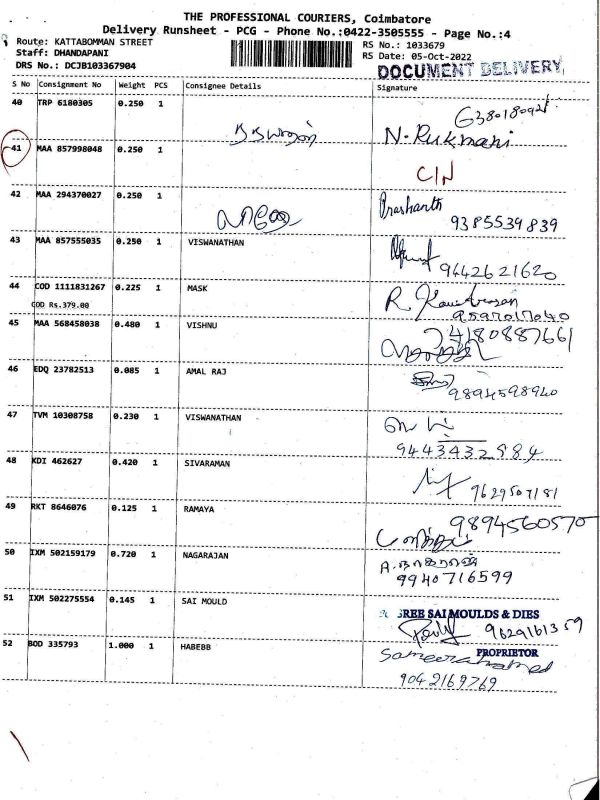 THE PROFESSIONAL COURIERS, Coimbatore
Delivery Runsheet - PCG - Phone No.:0422-3505555 - Page No.:4
Route: KATTABOMMAN STREET
RS No.: 1033679
Staff: DHANDAPANI
RS Date: 05-Oct-2022
DRS No.: DCJB103367904
DOCUMENT DELIVERY
S No Consignment No Weight PCS Consignee Details Signature
40 TRP 6180305 0.250 1
N. Rukmani
41 MAA 857998048 0.250 1
C/N
42 MAA 294370027 0.250 1 Prashanth
9385539839
43 MAA 857555035 0.250 1 VISWANATHAN
9442621620
44 COD 1111831267 0.225 1 MASK R.
COD Rs.379.00 9597017040
45 MAA 568458038 0.480 1 VISHNU 74180887661
46 EDQ 23782513 0.085 1 AMAL RAJ
9894598940
47 TVM 10308758 0.230 1 VISWANATHAN
9443432984
48 KDI 462627 0.420 1 SIVARAMAN
9629507181
49 RKT 8646076 0.125 1 RAMAYA 9894560570
50 IXM 502159179 0.720 1 NAGARAJAN A. நாகராஜன்
9940716599
51 IXM 502275554 0.145 1 SAI MOULD SREE SAI MOULDS & DIES
9629161359
52 BOD 335793 1.000 1 HABEBB PROPRIETOR
9042169769